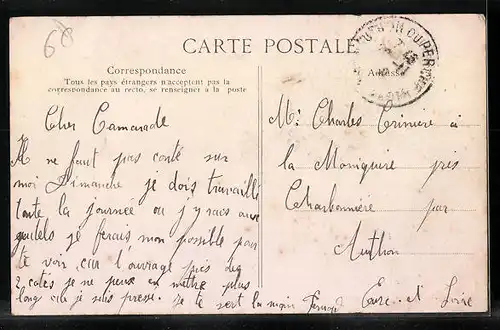 68
CARTE POSTALE
Correspondance
Tous les pays étrangers n'acceptent pas la
correspondance au recto, se renseigner à la poste
Adresse
Cher Camarade
Il ne faut pas conté sur
moi Dimanche je dois travaillé
toute la journée ou j'y vais aux
je ferais mon possible pour
te voir, car l'ouvrage près des
2 cotés je ne peux en mettre plus
long car je suis pressé. Je te sert la main
Mr Charles Trinière à
la Moniquire près
Charbonnière par
Authon
Eure-et-Loire